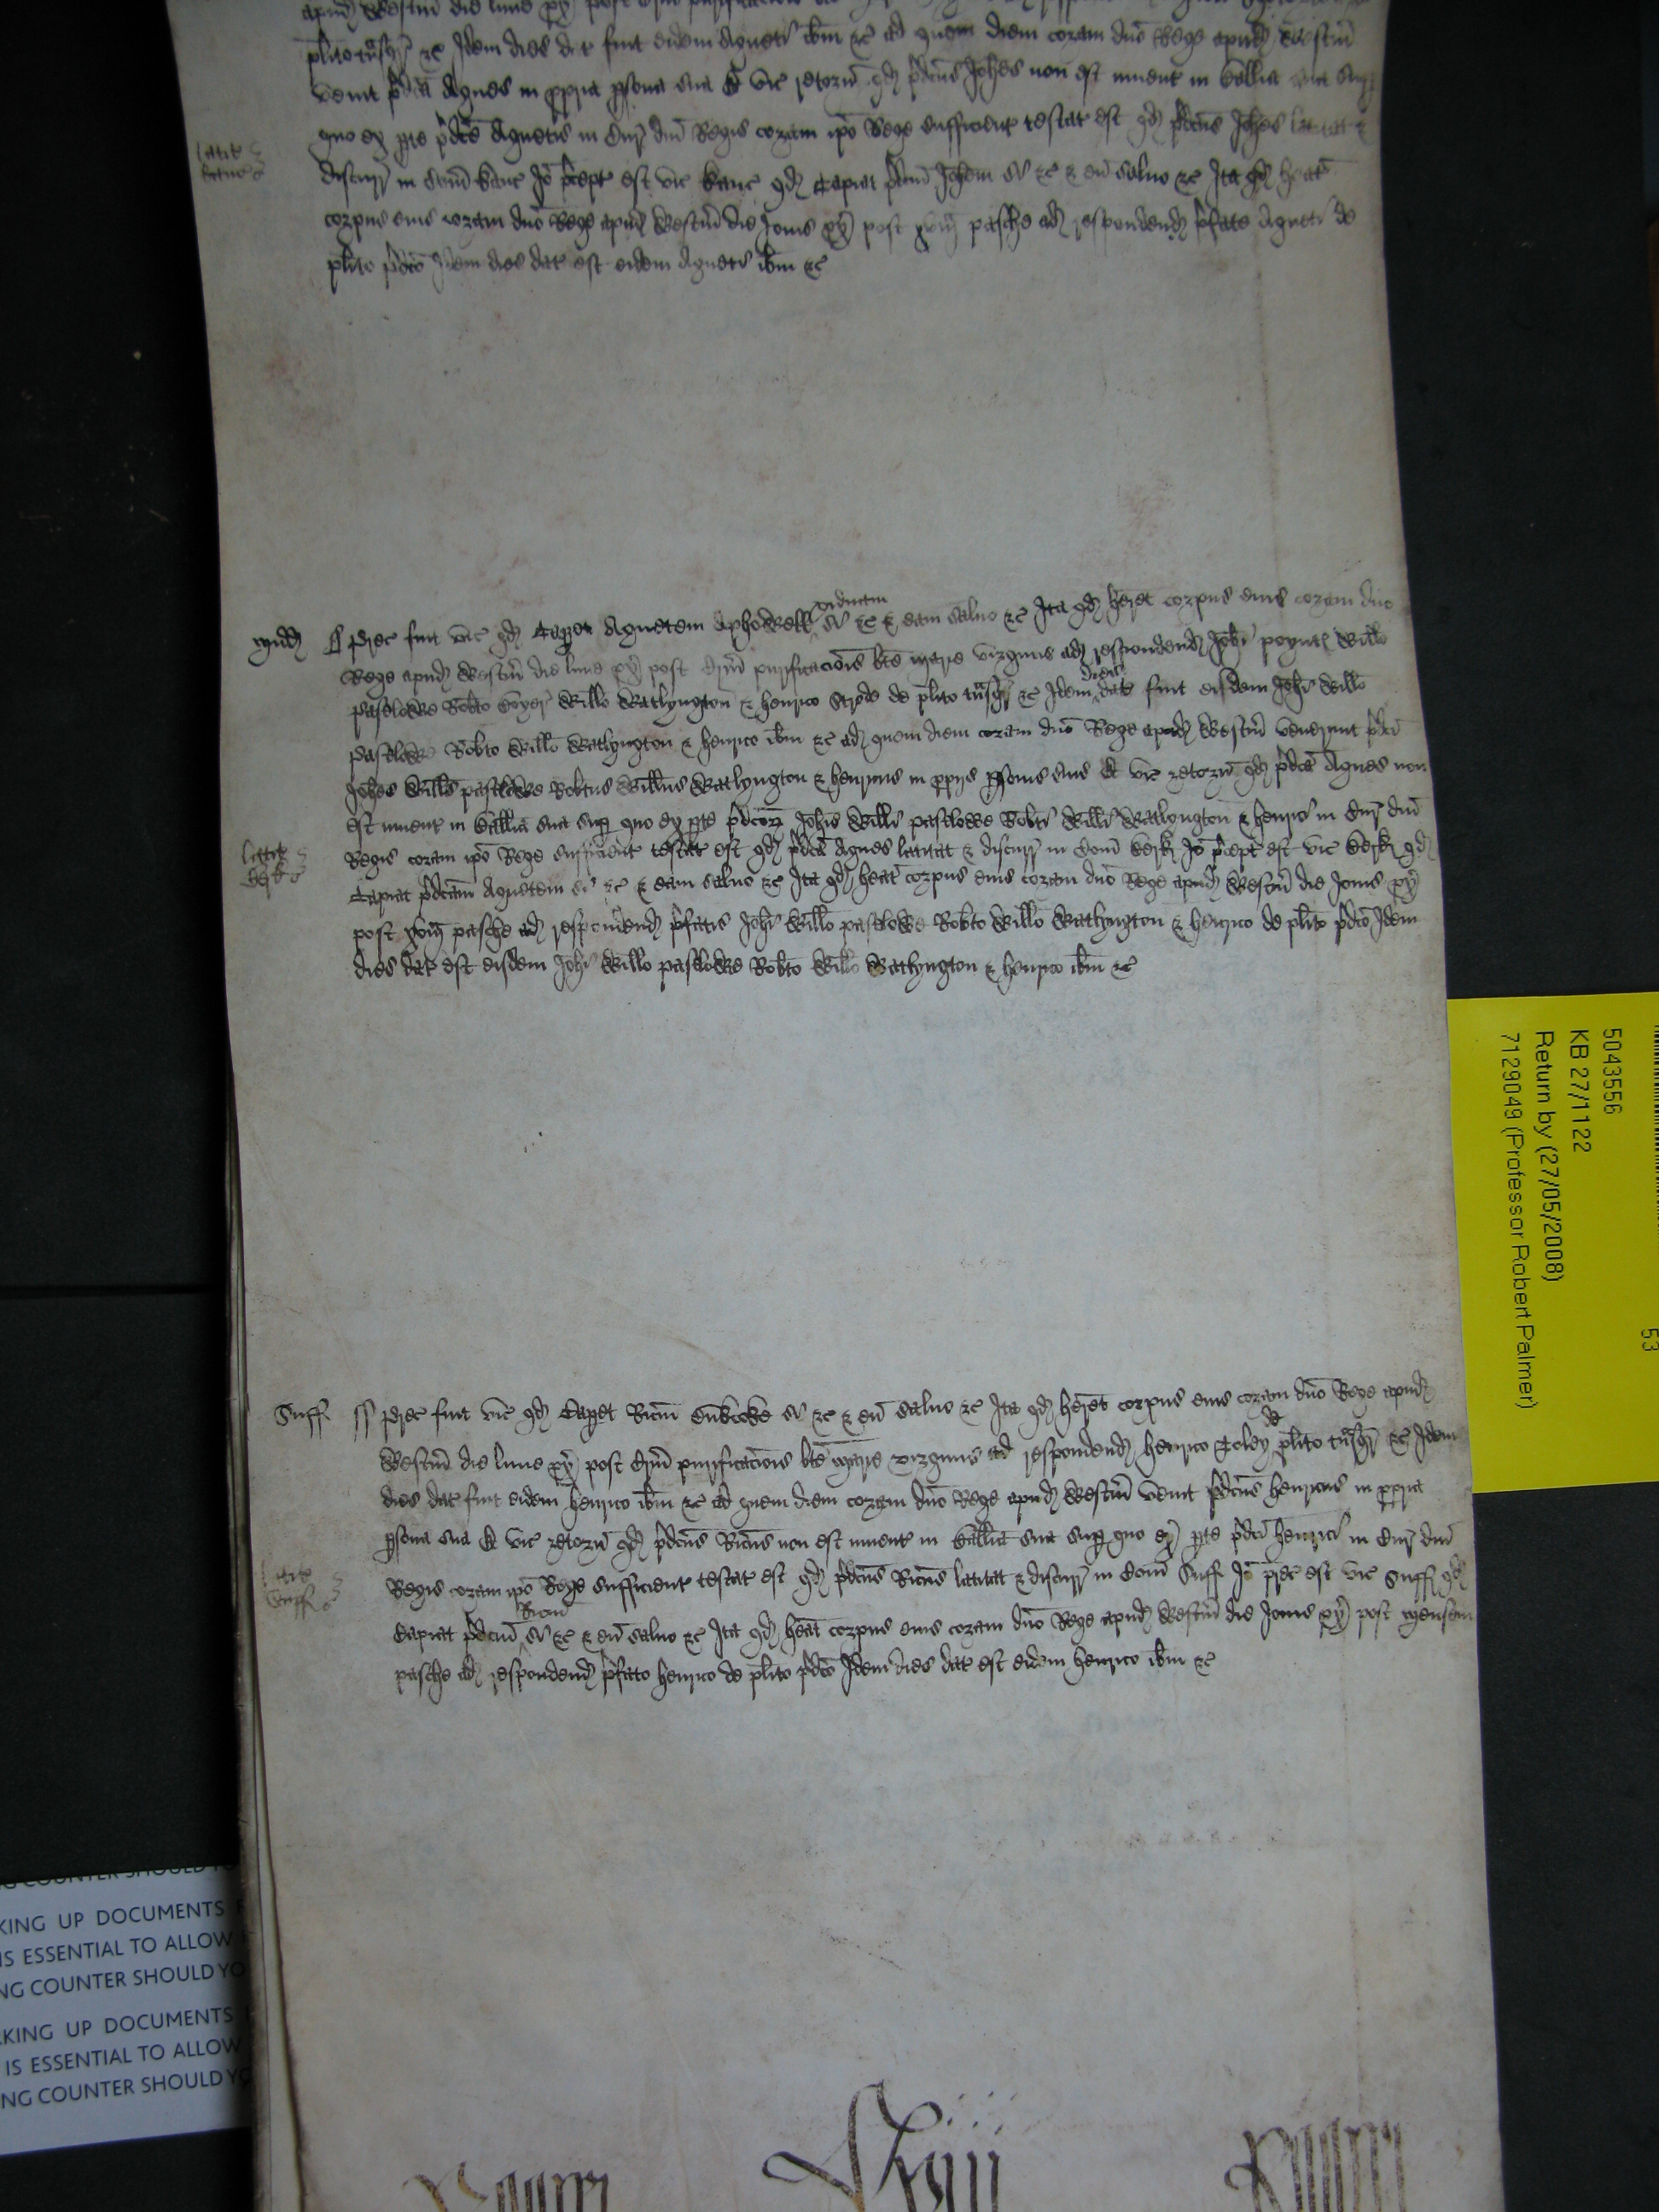 apud Westm̄ die lune px̄ post
plito tn̄sgr̄ ⁊c Idem dies dat fuit eidem Agneti ib̄m ⁊c ad quem diem coram dn̄o Rege apud Westm̄
venit p̄dc̄a Agnes in ppria psona sua Et vic̄ retorn̄ qd p̄dcūs Joh̄es non est invent in ballia sua Sup
quo ex pte p̄dc̄e Agnetis in Cur̄ dn̄i Regis coram ip̄o Rege sufficient testat est qd p̄dcūs Joh̄es latitat ⁊
latit
kanc
discurr̄ in Com̄ kanc Jō p̄cept est vic̄ kanc qd Capiat p̄dcm̄ Joh̄em si ⁊c ⁊ eū salvo ⁊c Ita qd heat
corpus eius coram dn̄o Rege apud Westm̄ die Jovis px̄ post xvām pasche ad respondend p̄fate Agneti de
plito p̄dc̄o Idem dies dat est eidem Agneti ib̄m ⁊c
Midd
ss Prec̄ fuit vic̄ qd Caperet Agnetem Aphowell viduam si ⁊c ⁊ eam salvo ⁊c Ita qd heret corpus eius coram dn̄o
Rege apud Westm̄ die lune px̄ post Crm̄ purificac̄ois bt̄e marie virginis ad respondend Joh̄i poyntz Will̄o
pastlowe Rob̄to Will̄o Watlyngton ⁊ henrico Strode de plito tn̄sgr̄ ⁊c Idem dies dat fuit eisdem Joh̄i Will̄o
pastlowe Rob̄to Will̄o Watlyngton ⁊ henrico ib̄m ⁊c ad quem diem coram dn̄o Rege apud Westm̄ venerunt p̄dc̄i
Joh̄es Will̄s pastlowe Rob̄tus Will̄us Watlyngton ⁊ henricus in pprijs psonis suis Et vic̄ retorn̄ qd p̄dc̄a Agnes non
est invent in ballia sua sup quo ex pte p̄dcōr Joh̄is Will̄i pastlowe Rob̄ti Will̄i Watlyngton ⁊ henrici in Cur̄ dn̄i
latit
Berk
Regis coram ip̄o Rege sufficient testat est qd p̄dc̄a Agnes latitat ⁊ discurr̄ in Com̄ Berk Jō p̄cept est vic̄ Berk qd
Capiat p̄dc̄am Agnetem si ⁊c ⁊ eam salvo ⁊c Ita qd heat corpus eius coram dn̄o Rege apud Westm̄ die Jovis px̄
post xvām pasche ad respondend p̄fatis Joh̄i Will̄o pastlowe Rob̄to Will̄o Watlyngton ⁊ henrico de plito p̄dc̄o Idem
dies dat est eisdem Joh̄i Will̄o pastlowe Rob̄to Will̄o Watlyngton ⁊ henrico ib̄m ⁊c
Suff
ss Prec̄ fuit vic̄ qd Caperet Ricm̄ si ⁊c ⁊ eū salvo ⁊c Ita qd heret corpus eius coram dn̄o Rege apud
Westm̄ die lune px̄ post Crm̄ purificac̄ois bt̄e marie virginis ad respondend henrico Toley de plito tn̄sgr̄ ⁊c Idem
dies dat fuit eidem henrico ib̄m ⁊c ad quem diem coram dn̄o Rege apud Westm̄ venit p̄dcūs henricus in ppria
psona sua Et vic̄ retorn̄ qd p̄dcūs Ricūs non est invent in ballia sua sup quo ex pte p̄dc̄i henrici in Cur̄ dn̄i
latit
Suff
Regis coram ip̄o Rege sufficient testat est qd p̄dcūs Ricūs latitat ⁊ discurr̄ in Com̄ Suff Jō prec̄ est vic̄ Suff qd
Capiat p̄dcm̄ Ricm̄ si ⁊c ⁊ eū salvo ⁊c Ita qd heat corpus eius coram dn̄o Rege apud Westm̄ die Jovis px̄ post mensem
pasche ad respondend p̄fato henrico de plito p̄dc̄o Idem dies dat est eidem henrico ib̄m ⁊c
5043556
KB 27/1122
Return by (27/05/2008)
7129049 (Professor Robert Palmer)
53
COUNTER SHOULD
KING UP DOCUMENTS
IS ESSENTIAL TO ALLOW
NG COUNTER SHOULD YO
KING UP DOCUMENTS
IS ESSENTIAL TO ALLOW
NG COUNTER SHOULD YO